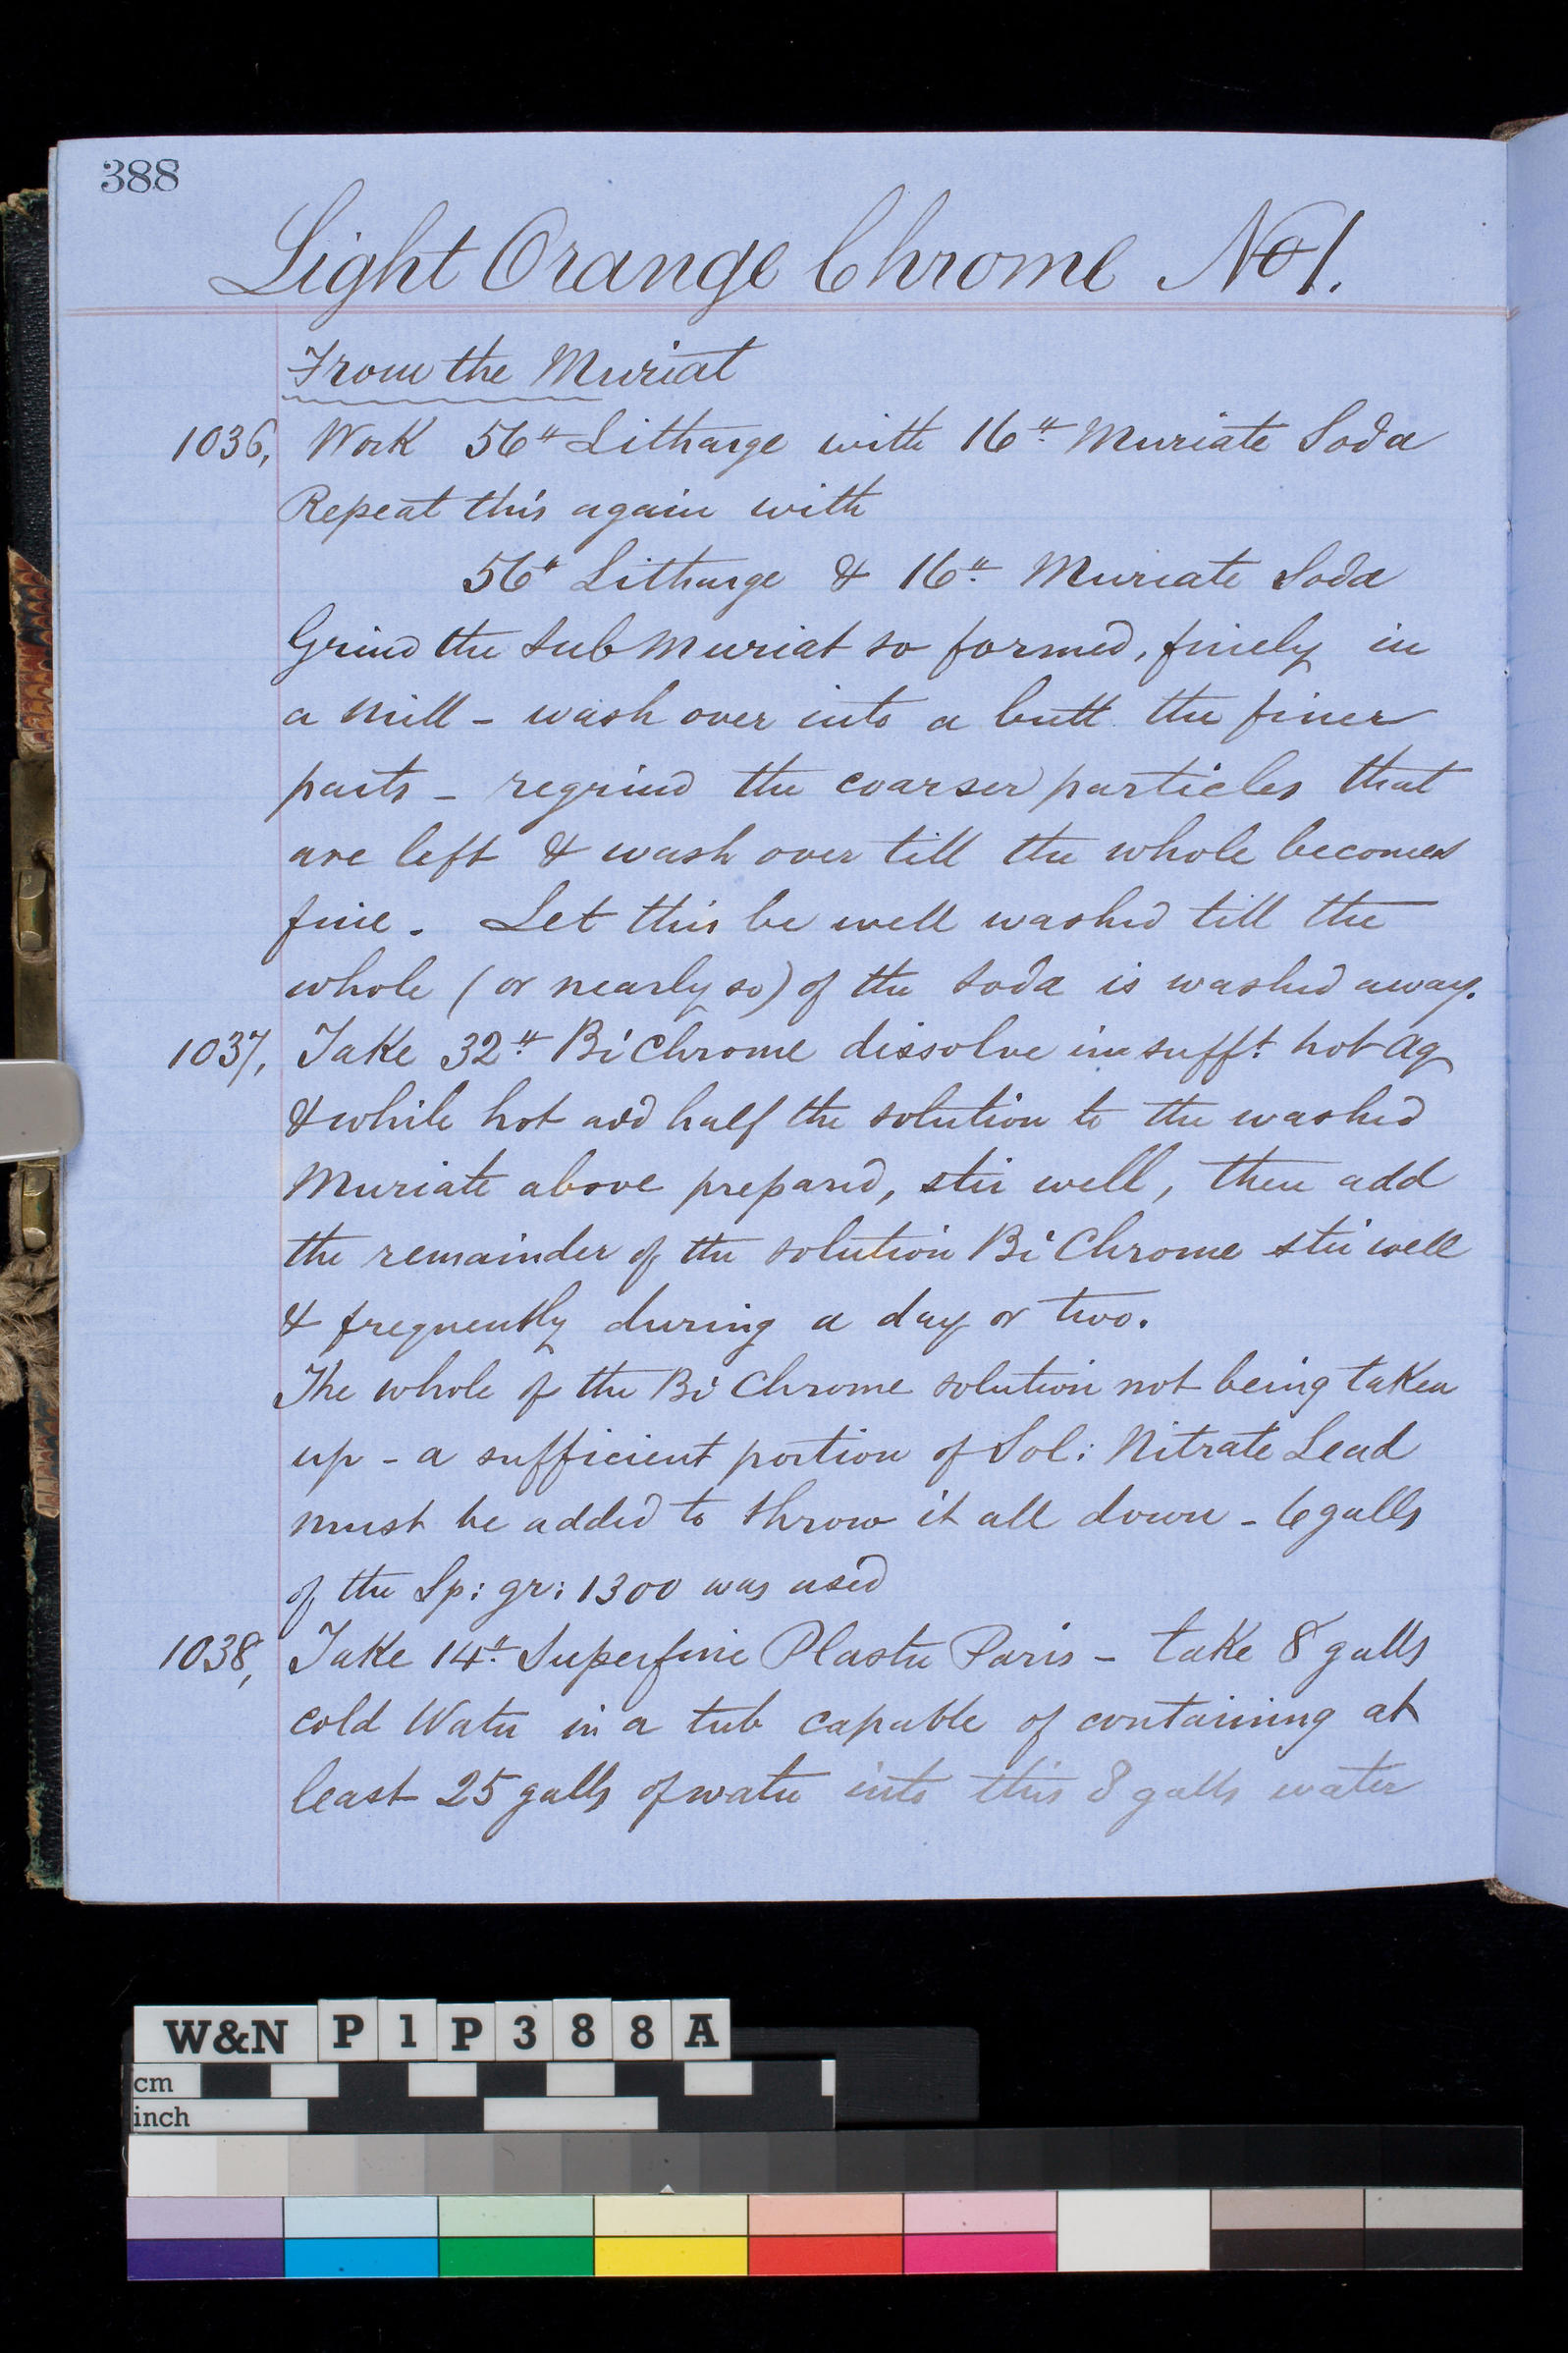 388
Light Orange Chrome No 1.
From the Muriat
1036, Work 56" Litharge with 16" Muriate Soda
Repeat this again with
56" Litharge & 16" Muriate Soda
Grind the Sub Muriat so formed, finely in
a mill - wash over into a butt the finer
parts - regrind the coarser particles that
are left & wash over till the whole becomes
fine. Let this be well washed till the
whole (or nearly so) of the Soda is washed away.
1037, Take 32" Bi Chrome dissolve in sufft hot aq
& while hot add half the solution to the washed
Muriate above prepared, stir well, then add
the remainder of the solution Bi Chrome stir well
& frequently during a day or two.
The whole of the Bi Chrome solution not being taken
up - a sufficient portion of Sol: Nitrate Lead
must be added to throw it all down - 6 galls
of the Sp: gr: 1300 was used
1038, Take 14" Superfine Plaster Paris - take 8 galls
cold Water in a tub capable of containing at
least 25 galls of water into this 8 galls water
W&N P1P388A
cm
inch